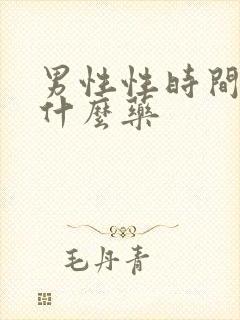 男性性時間
什麼藥
毛丹青